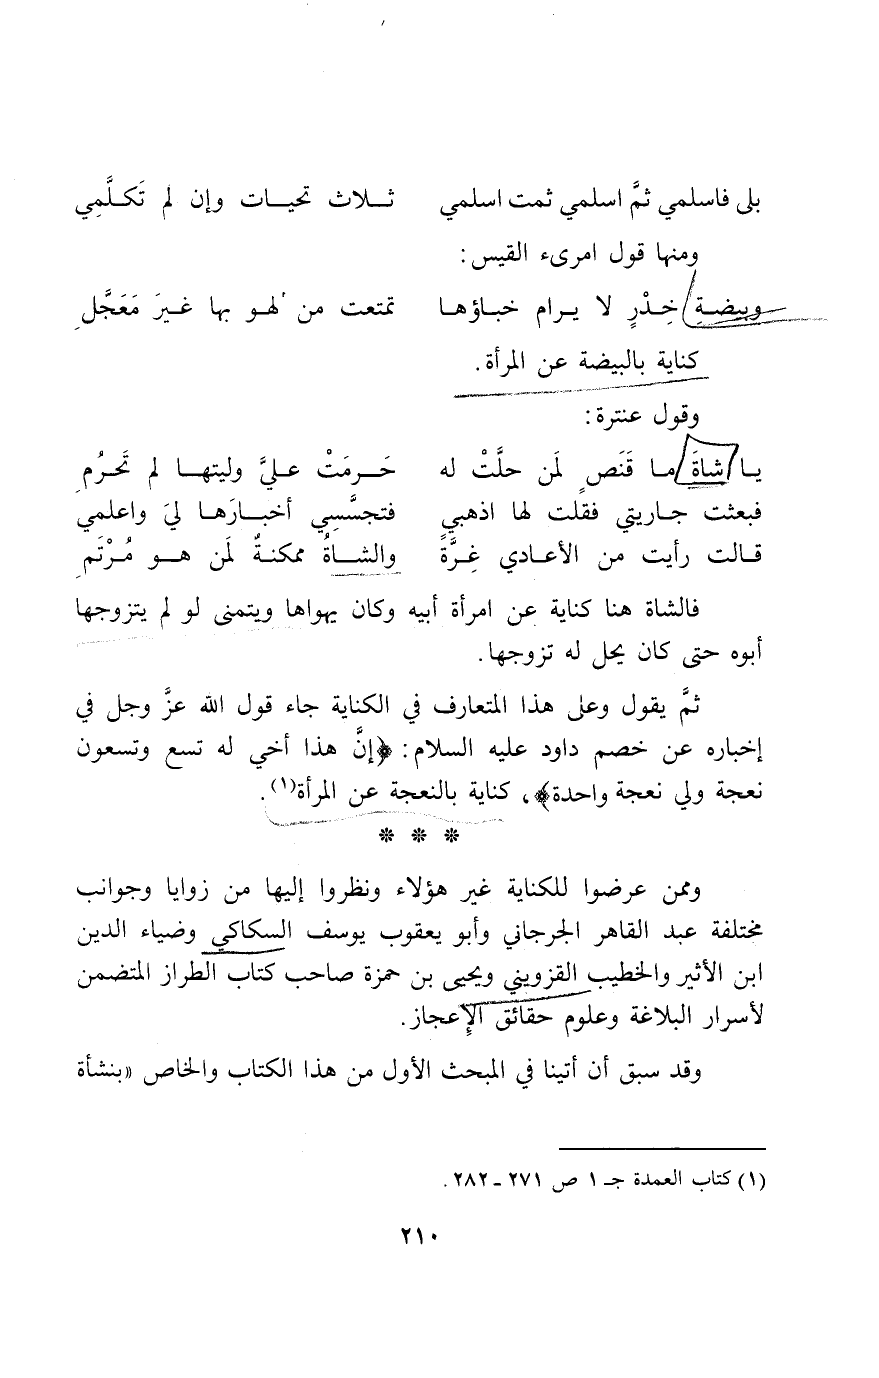 بلى فاسلمي ثمَّ اسلمي ثمت اسلمي ثــلاث تحيــات وإن لم تَكــلَّمِي
ومنها قول امرىء القيس:
وبيضــةِ خِــدْرٍ لا يــرام خباؤهــا تمتعت من لهــو بها غــيرَ مَعَجَّل ِ
كناية بالبيضة عن المرأة.
وقول عنترة:
يــا شاةَ مــا قَنَصٍ لمَن حلَّتْ له حَــرمَتْ عــليَّ وليتهــا لم تَحرُم ِ
فبعثت جــاريتي فقلت لها اذهبي فتجسَّسِي أخبــارَهــا ليَ واعلمي
قــالت رأيت من الأعــادي غِــرَّةً والشــاةُ ممكنــةٌ لمَن هــو مُــرْتَم ِ
فالشاة هنا كناية عن امرأة أبيه وكان يهواها ويتمنى لو لم يتزوجها
أبوه حتى كان يحل له تزوجها.
ثمَّ يقول وعلى هذا المتعارف في الكناية جاء قول الله عزَّ وجل في
إخباره عن خصم داود عليه السلام: ﴿إنَّ هذا أخي له تسع وتسعون
نعجة ولي نعجة واحدة﴾، كناية بالنعجة عن المرأة(١).
* * *
وممن عرضوا للكناية غير هؤلاء ونظروا إليها من زوايا وجوانب
مختلفة عبد القاهر الجرجاني وأبو يعقوب يوسف السكاكي وضياء الدين
ابن الأثير والخطيب القزويني ويحيى بن حمزة صاحب كتاب الطراز المتضمن
لأسرار البلاغة وعلوم حقائق الإعجاز.
وقد سبق أن أتينا في المبحث الأول من هذا الكتاب والخاص «بنشأة
(١) كتاب العمدة جـ ١ ص ٢٧١ - ٢٨٢.
٢١٠